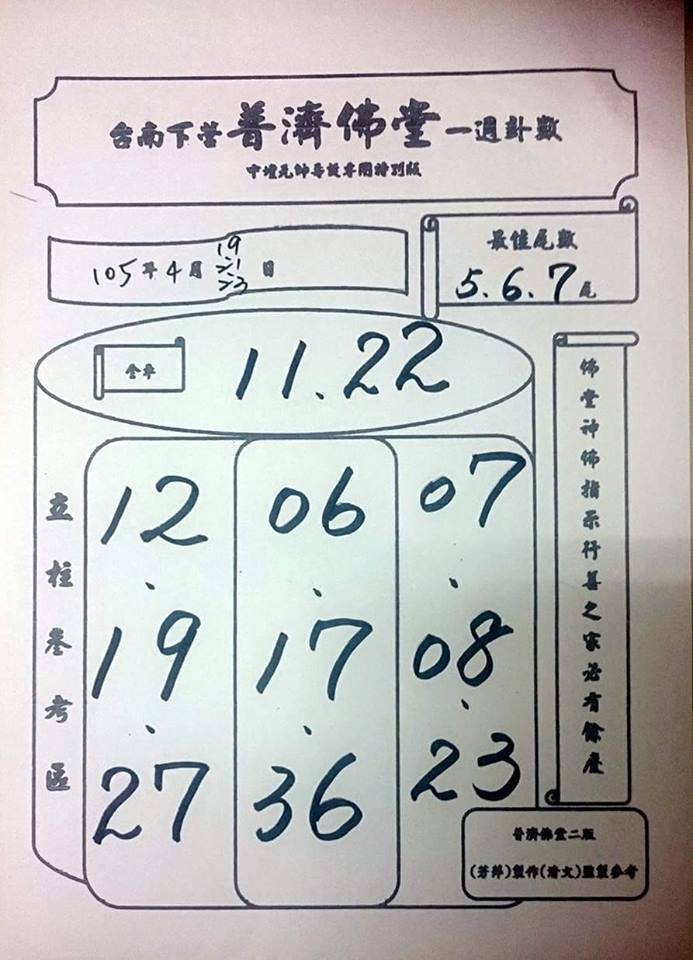 台南下營普濟佛堂一週卦數
中壇元帥每談專開特別版
105年4月19 21 23日
最佳尾數
5.6.7尾
全車
11.22
立柱參考區
12.19.27
06.17.36
07.08.23
佛堂神佛指示行善之家必有餘慶
普濟佛堂二版
(芳萍)製作(清文)監製參考